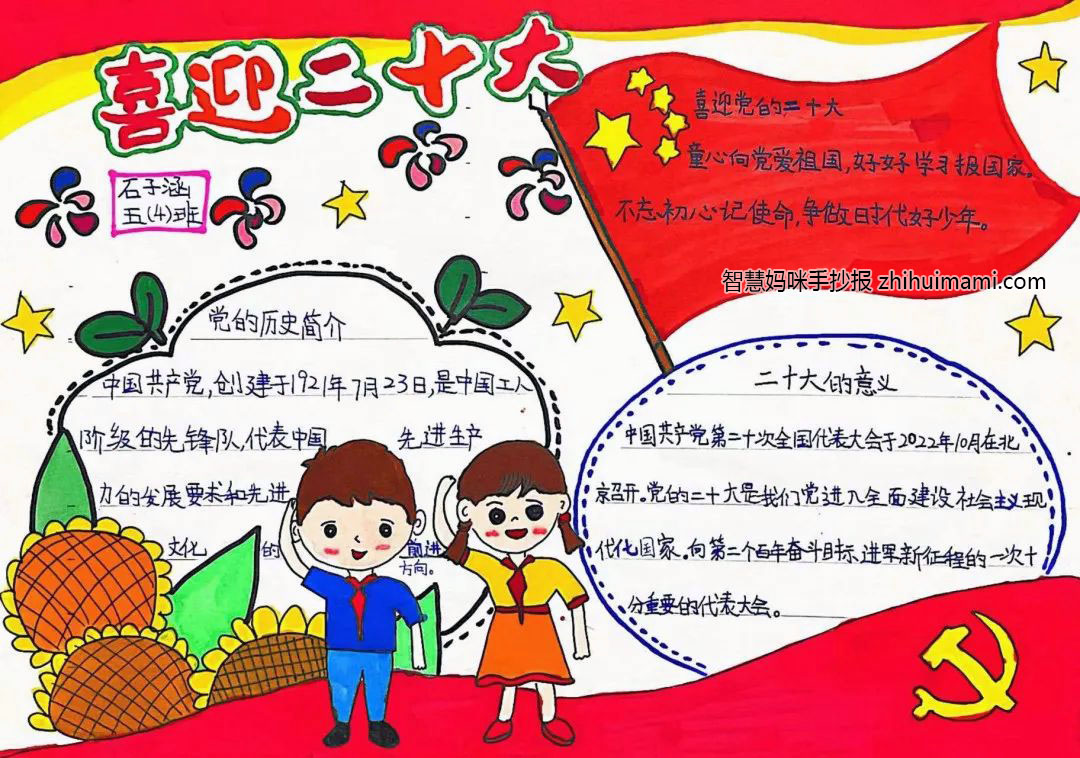 喜迎二十大
石子涵
五(4)班
喜迎党的二十大
童心向党爱祖国,好好学习报国家。
不忘初心记使命,争做时代好少年。
智慧妈咪手抄报 zhihuimami.com
党的历史简介
中国共产党,创建于1921年7月23日,是中国工人
阶级的先锋队,代表中国 先进生产
力的发展要求和先进
文化 的 前进
方向。
二十大的意义
中国共产党第二十次全国代表大会于2022年10月在北
京召开。党的二十大是我们党进入全面建设社会主义现
代化国家。向第二个百年奋斗目标,进军新征程的一次十
分重要的代表大会。